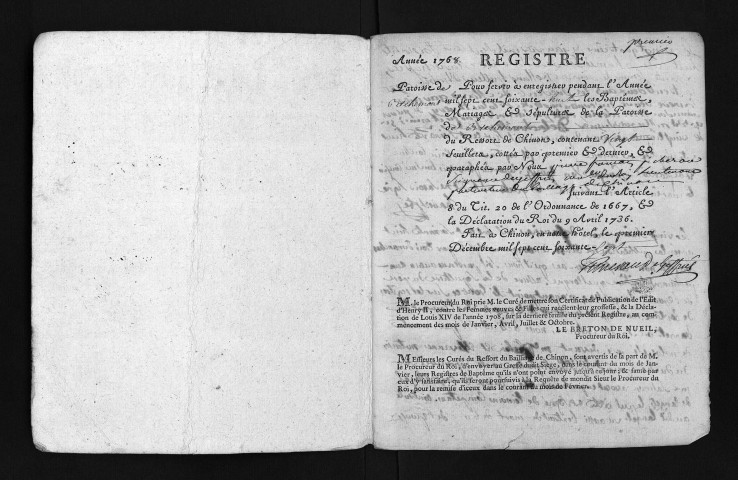 premier
Année 1768. REGISTRE
Paroisse de Pour servir à enregistrer pendant l'Année
mil sept cent soixante-huit les Baptêmes,
Mariages & Sépultures de la Paroisse
de
du Ressort de Chinon, contenant vingt
feuillets, cottés par premier & dernier, &
paraphés par Nous
suivant l'Article
8 du Tit. 20 de l'Ordonnance de 1667, &
la Déclaration du Roi du 9 Avril 1736.
Fait à Chinon, en notre Hôtel, le premier
Décembre mil sept cent soixante-sept
M. le Procureur du Roi prie M. le Curé de mettre son Certificat de Publication de l'Edit
d'Henry II, contre les Femmes veuves & Filles qui recelent leur grossesse, & la Décla-
ration de Louis XIV de l'année 1708, sur la derniere feuille du présent Registre, au com-
mencement des mois de Janvier, Avril, Juillet & Octobre.
LE BRETON DE NUEIL,
Procureur du Roi.
MEssieurs les Curés du Ressort du Bailliage de Chinon, sont avertis de la part de M.
le Procureur du Roi, d'envoyer au Greffe dudit Siege, dans le courant du mois de Jan-
vier, leurs Registres de Baptême qu'ils n'ont point envoyé jusqu'à ce jour; & faute par
eux d'y satisfaire, qu'ils seront poursuivis à la Requête de mondit Sieur le Procureur du
Roi, pour la remise d'iceux dans le courant du mois de Février.